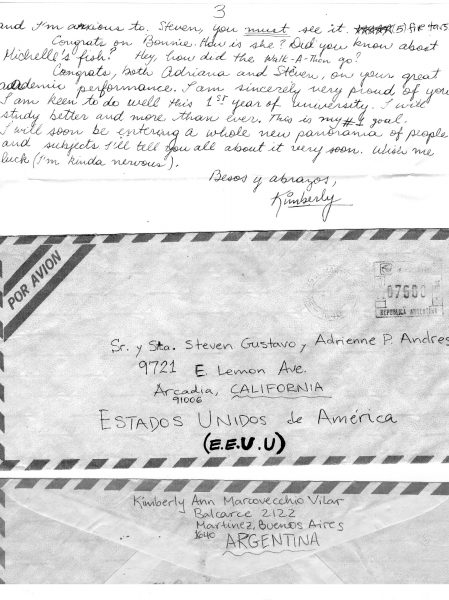 3
and I'm anxious to. Steven, you must see it.
Congrats on Bonnie. How is she? Did you know about
Michelle's fish? Hey, how did the Walk-A-Thon go?
Congrats, both Adriana and Steven, on your great
academic performance. I am sincerely very proud of you
I am keen to do well this 1st year of university. I will
study better and more than ever. This is my #1 goal.
I will soon be entering a whole new panorama of people
and subjects I'll tell you all about it very soon. Wish me
luck (I'm kinda nervous).
Besos y abrazos,
Kimberly
POR AVION
07600
REPUBLICA ARGENTINA
Sr. y Sta. Steven Gustavo y Adrienne P. Andres
9721 E. Lemon Ave.
Arcadia, CALIFORNIA
91006
ESTADOS UNIDOS de América
(E.E.U.U)
Kimberly Ann Marcovecchio Vilar
Balcarce 2122
Martinez, Buenos Aires
1640 ARGENTINA